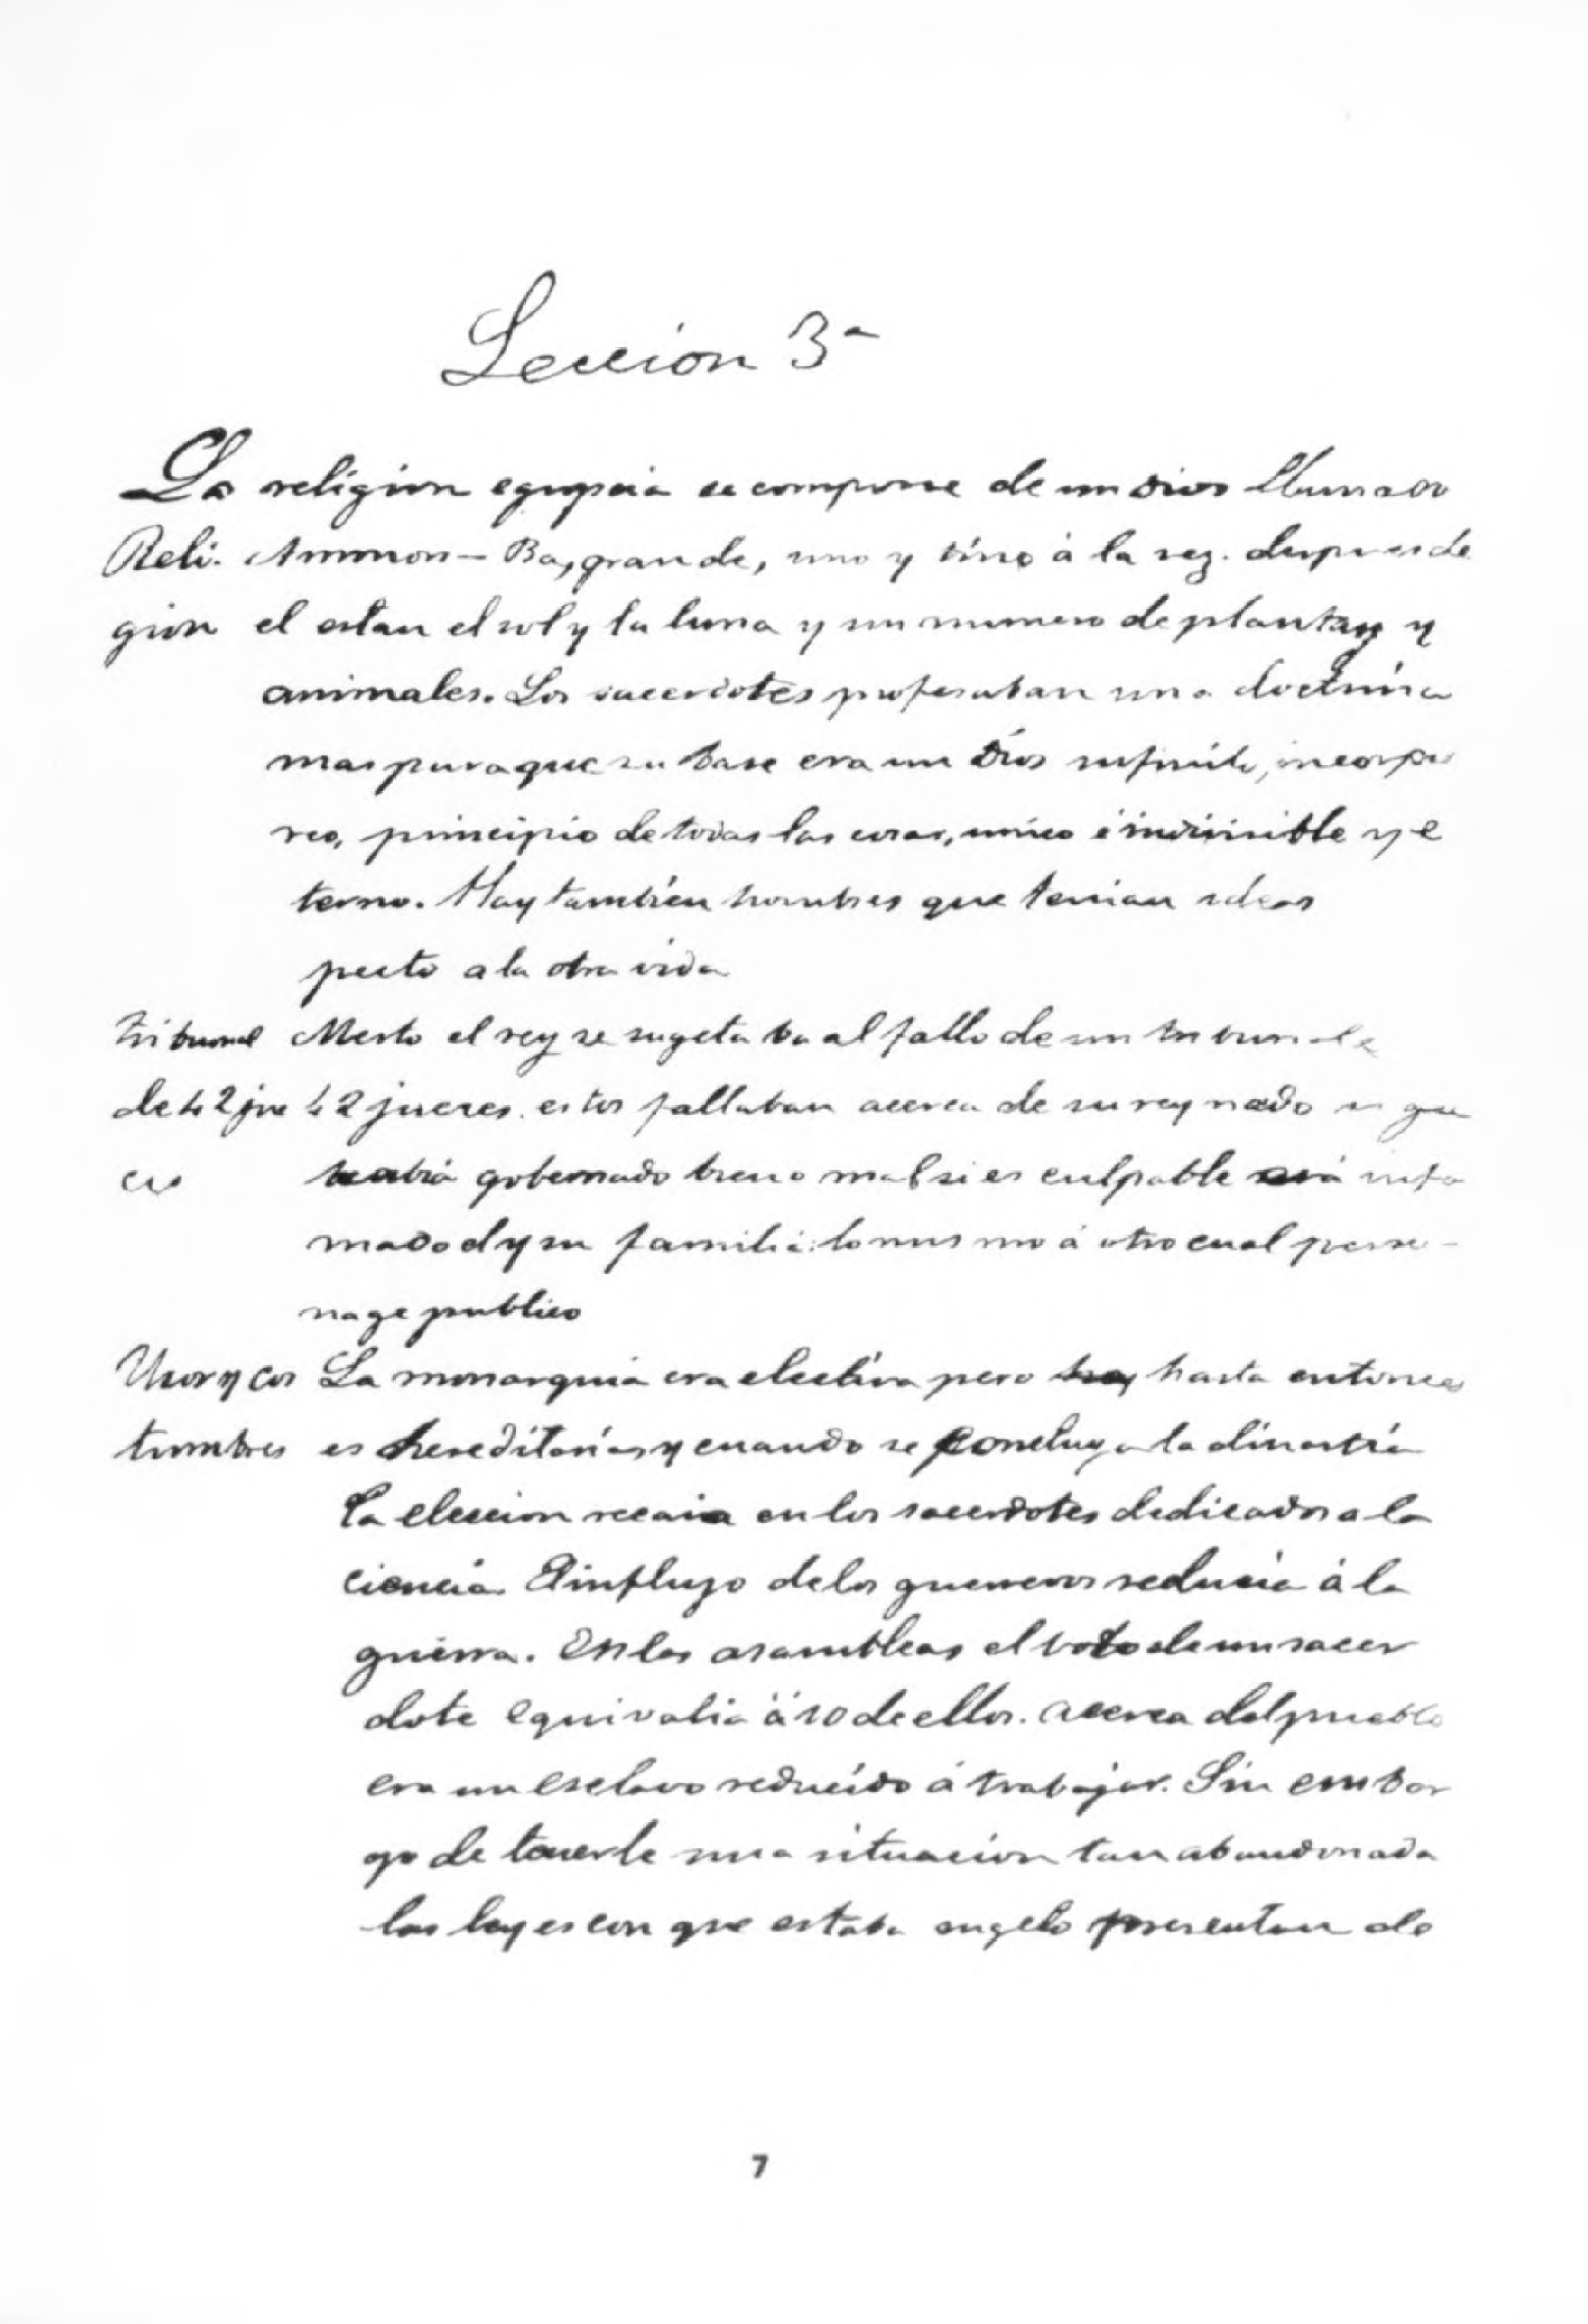 Leccion 3ª
La religion egipcia se compone de un dios llamado
Reli- Ammon-Ra, grande, uno y trino á la vez. despues de
gion el estan el sol y la luna y un numero de plantas y
animales. Los sacerdotes profesaban una doctrina
mas pura que su base era un Dios infinito, incorpo
reo, principio de todas las cosas, unico é indivisible y e
terno. Hay tambien hombres que tenian ideas
pecto a la otra vida
Tribunal Muerto el rey se sugetaba al fallo de un tribunal de
de 42 jue 42 jueces. estos fallaban acerca de su reynado si que
ces habia gobernado bien o mal si es culpable era infa
mado el y su familia: lo mismo á otro cual perso-
nage publico
Usos y cos La monarquia era electiva pero hasta entonces
tumbres es hereditarias y cuando se concluya la dinastia
la eleccion recaia en los sacerdotes dedicados a la
ciencia. El influyo de los guerreros reducia á la
guerra. En las asambleas el voto de un sacer
dote equivalia á 10 de ellos. acerca del pueblo
era un esclavo reducido á trabajar. Sin embar
go de tenerle una situacion tan abandonada
las leyes con que estaba sugeto presentan de
7